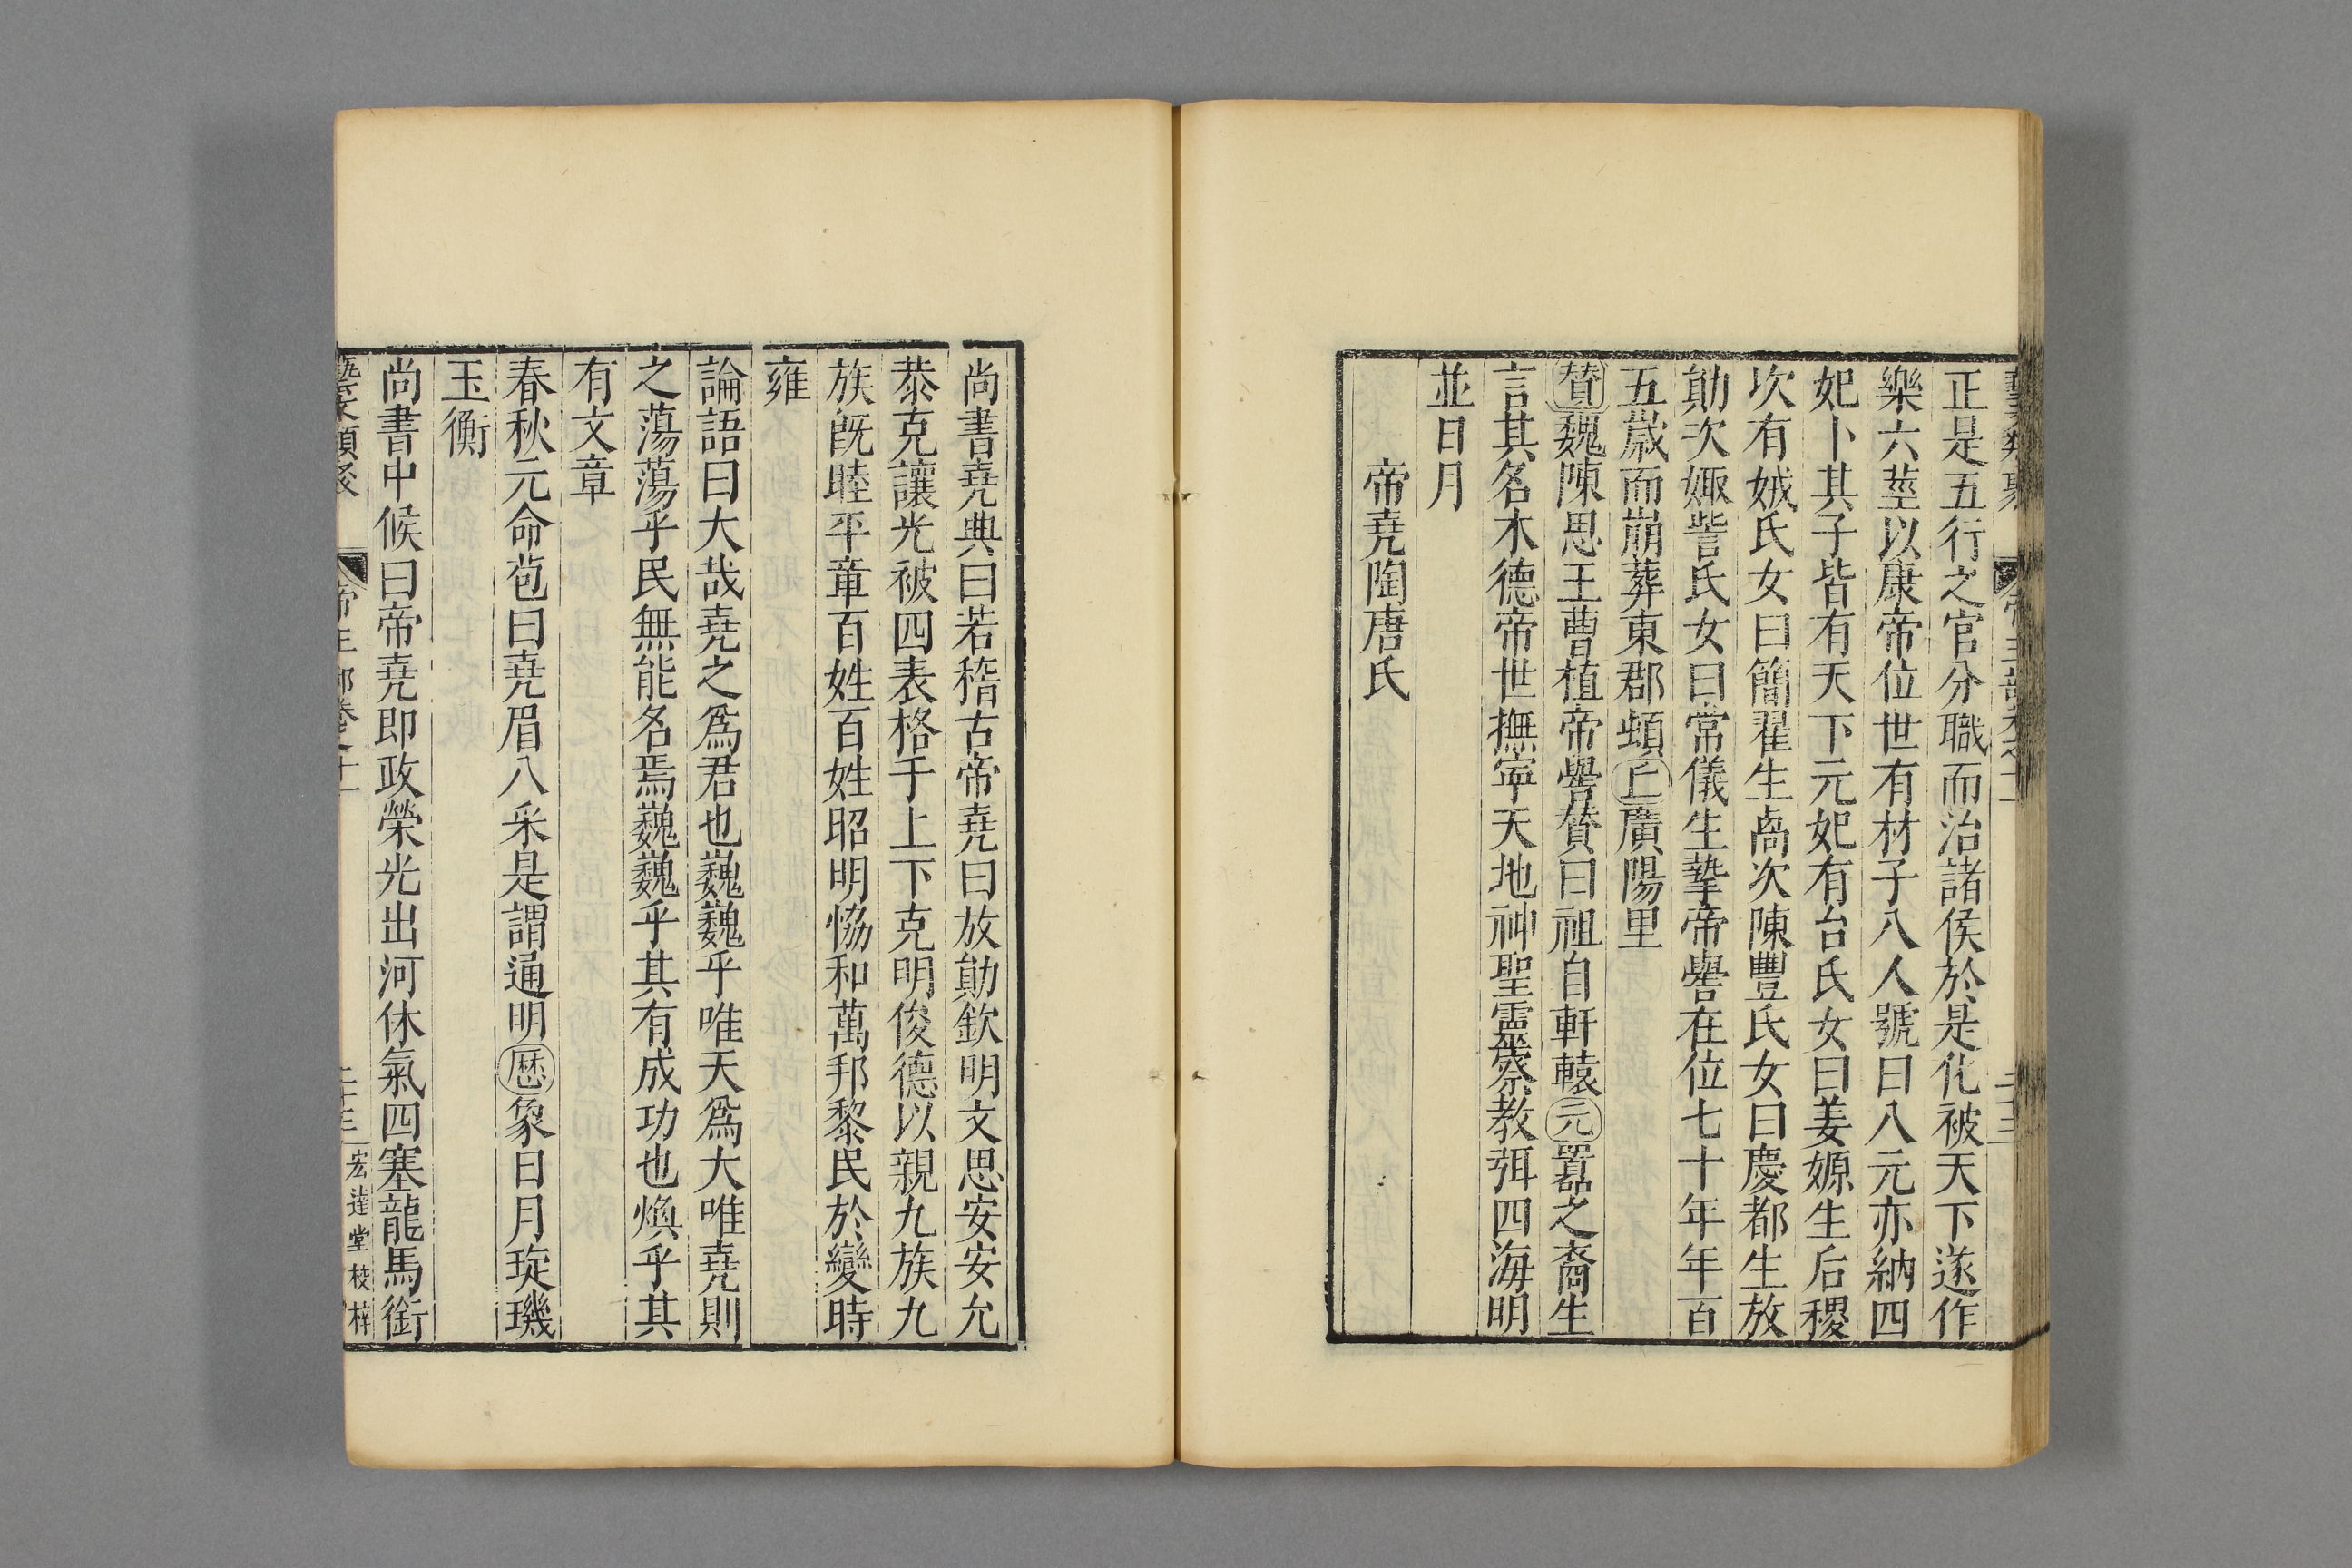 正是五行之官分職而治諸侯於是化被天下遂作
樂六莖以康帝位世有材子八人號曰八元亦納四
妃卜其子皆有天下元妃有台氏女曰姜嫄生后稷
次有娀氏女曰簡翟生卨次陳豐氏女曰慶都生放
勛次娵訾氏女曰常儀生摯帝嚳在位七十年年百
五歲而崩葬東郡頓丘廣陽里
贊魏陳思王曹植帝嚳贊曰祖自軒轅元囂之裔生
言其名木德帝世撫寧天地神聖靈察教弭四海明
並日月
帝堯陶唐氏
尚書堯典曰若稽古帝堯曰放勛欽明文思安安允
恭克讓光被四表格于上下克明俊德以親九族九
族旣睦平章百姓百姓昭明恊和萬邦黎民於變時
雍
論語曰大哉堯之爲君也巍巍乎唯天爲大唯堯則
之蕩蕩乎民無能名焉巍巍乎其有成功也煥乎其
有文章
春秋元命苞曰堯眉八采是謂通明厯象日月琁璣
玉衡
尚書中候曰帝堯即政榮光出河休氣四塞龍馬銜
宏達堂校梓